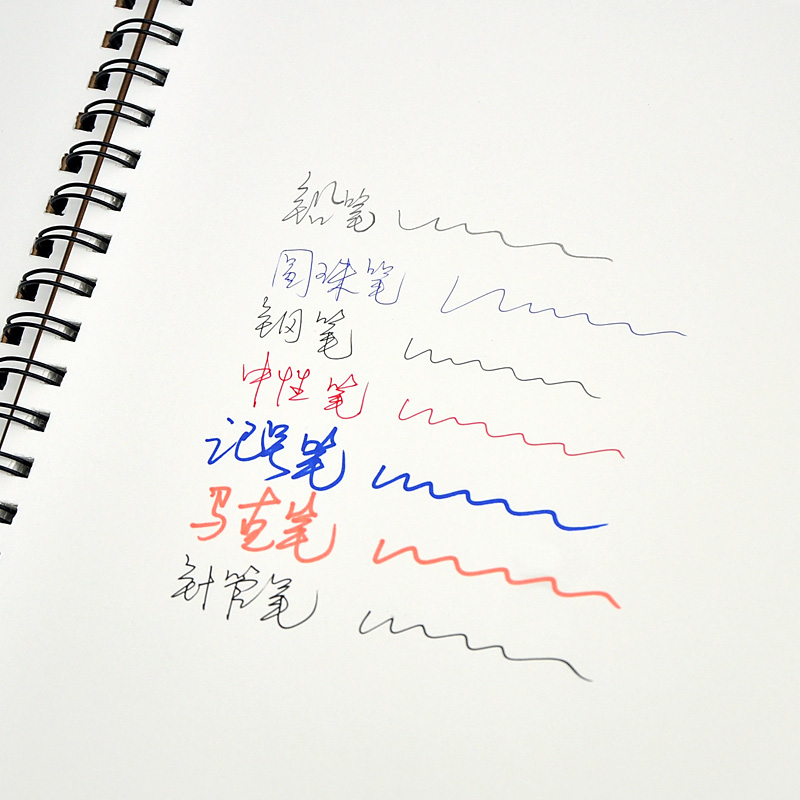 铅笔
圆珠笔
钢笔
中性笔
记号笔
马克笔
针管笔